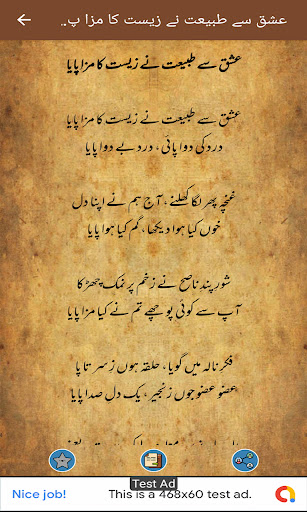 عشق سے طبیعت نے زیست کا مزا پ..
عشق سے طبیعت نے زیست کا مزا پایا
عشق سے طبیعت نے زیست کا مزا پایا
درد کی دوا پائی، درد بے دوا پایا
غنچہ پھر لگا کھلنے، آج ہم نے اپنا دل
خوں کیا ہوا دیکھا، گم کیا ہوا پایا
شورِ پندِ ناصح نے زخم پر نمک چھڑکا
آپ سے کوئی پوچھے تم نے کیا مزا پایا
فکرِ نالہ میں گویا، حلقہ ہوں ز سر تا پا
عضو عضو جوں زنجیر، یک دلِ صدا پایا
Test Ad
Nice job!
This is a 468x60 test ad.